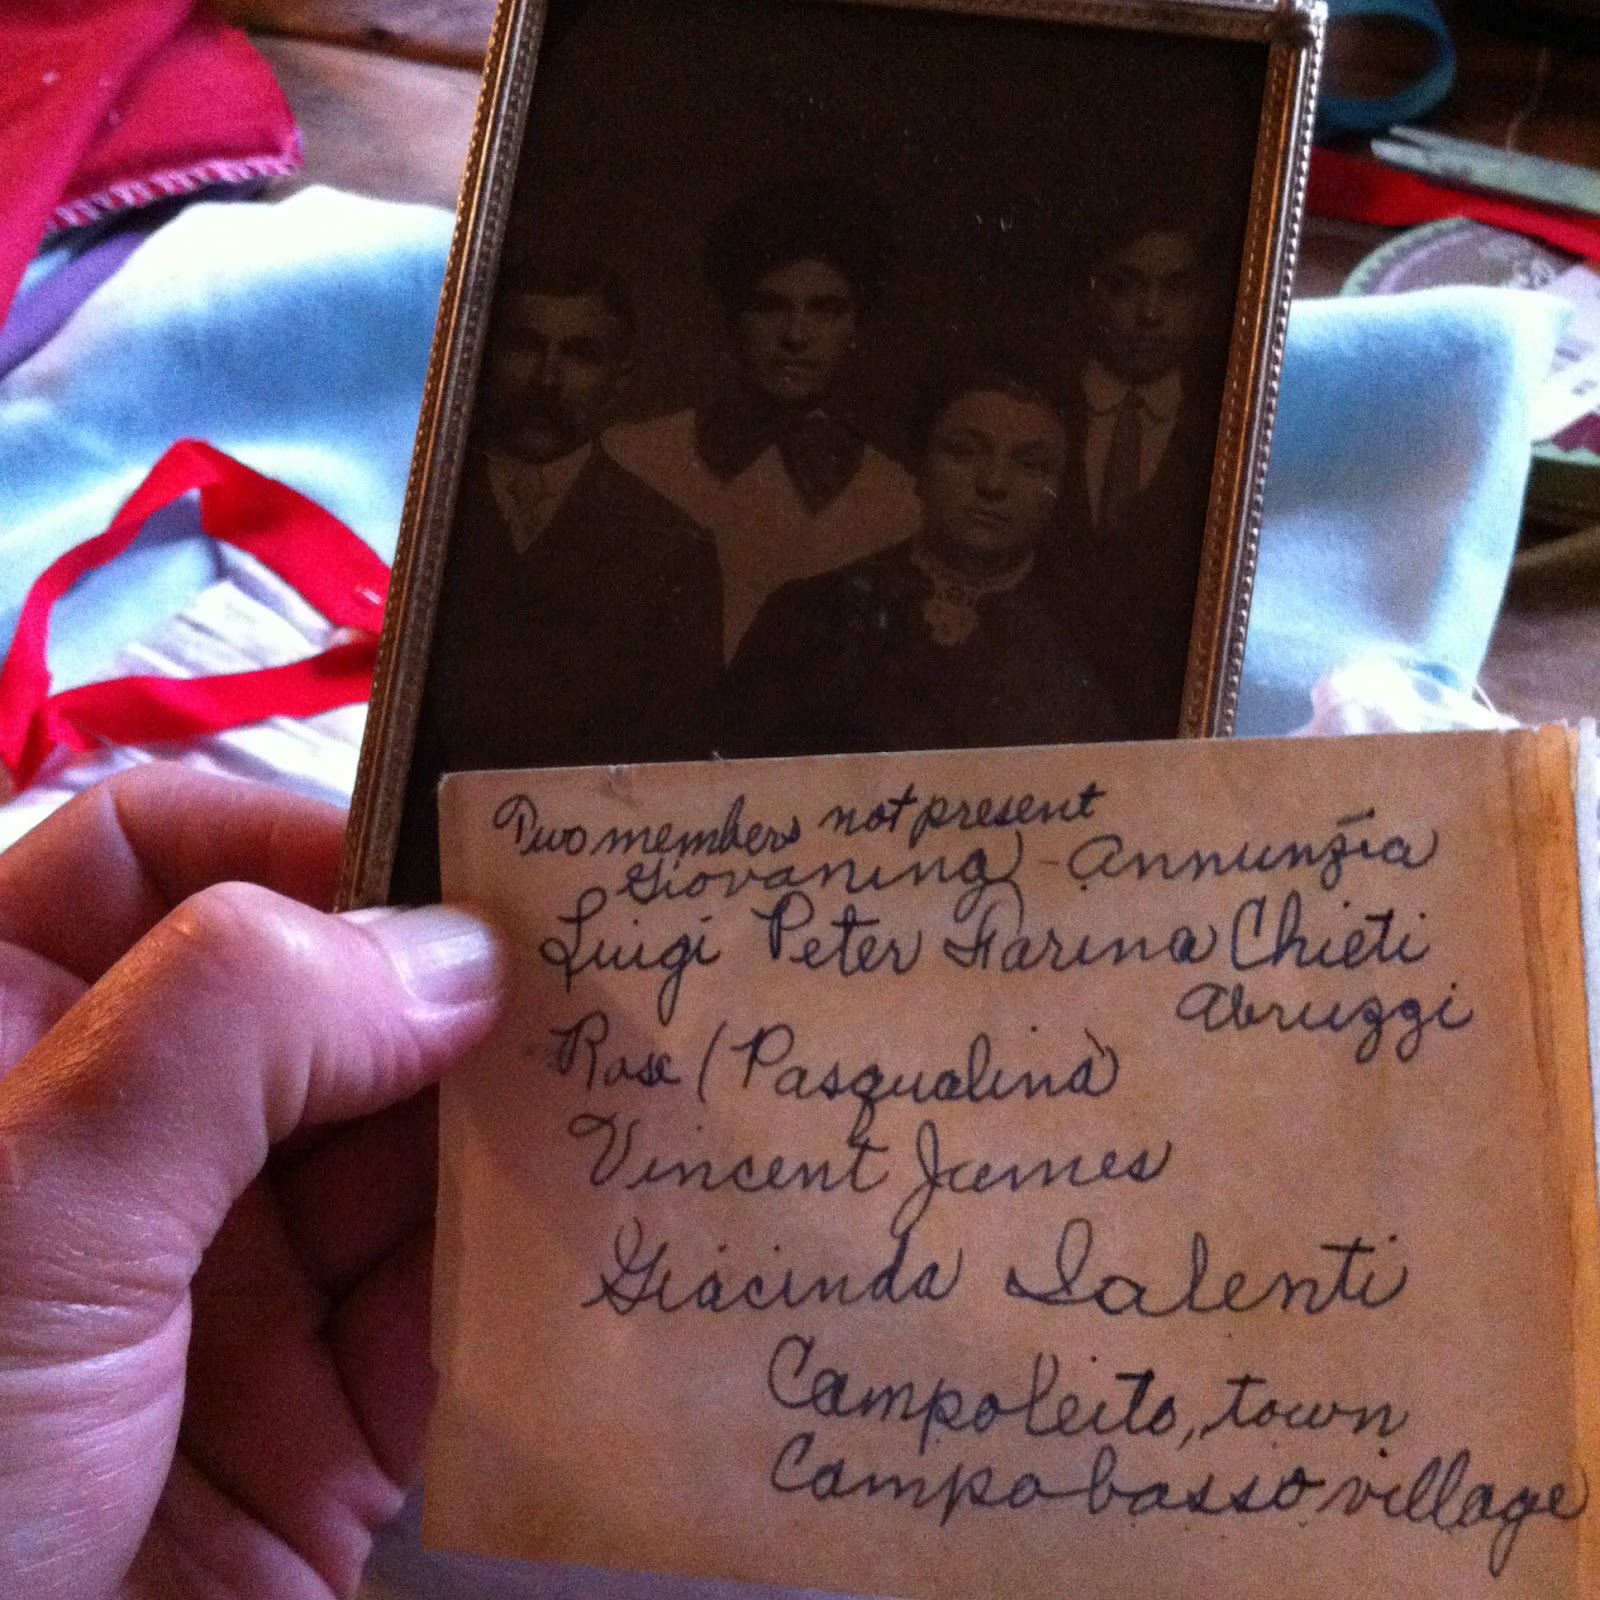 Two members not present
Giovanina - Annunzia
Luigi Peter Farina Chieti
Abruzzi
Rose (Pasqualina)
Vincent James
Giacinda Salenti
Campoleito, town
Campobasso village